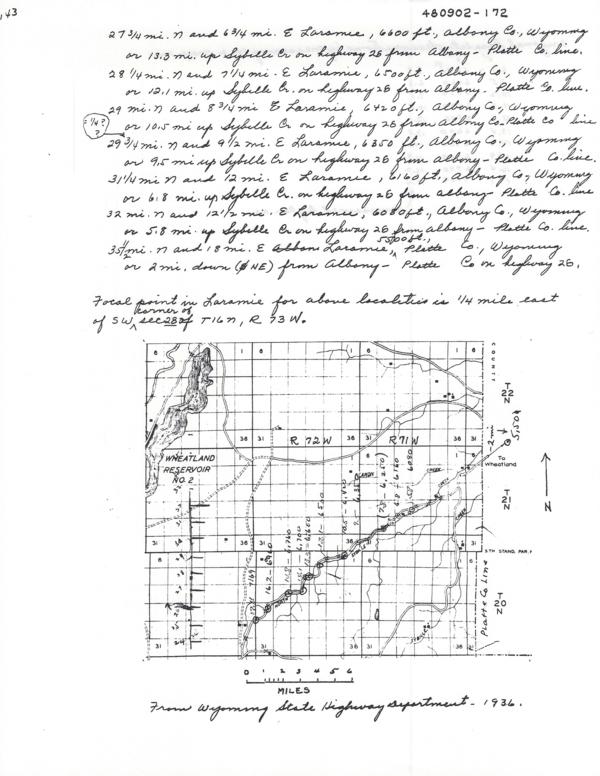 ,43
480902-172
27 3/4 mi. N and 6 3/4 mi. E Laramie, 6600 ft., Albany Co., Wyoming
or 13.3 mi. up Sybille Cr on highway 26 from Albany - Platte Co. line.
28 1/4 mi. N and 7 1/4 mi. E Laramie, 6500 ft., Albany Co., Wyoming
or 12.1 mi. up Sybille Cr. on highway 26 from Albany - Platte Co. line.
29 mi. N and 8 3/4 mi E Laramie, 6420 ft., Albany Co., Wyoming
or 10.5 mi up Sybille Cr on highway 26 from Albany Co - Platte Co line
29 3/4 mi. N and 9 1/2 mi. E Laramie, 6350 ft., Albany Co., Wyoming
or 9.5 mi up Sybille Cr on highway 26 from Albany - Platte Co. line.
31 1/4 mi N and 12 mi. E Laramie, 6160 ft., Albany Co., Wyoming
or 6.8 mi. up Sybille Cr. on highway 26 from Albany - Platte Co. line
32 mi. N and 12 1/2 mi. E Laramie, 6080 ft., Albany Co., Wyoming
or 5.8 mi. up Sybille Cr on highway 26 from Albany - Platte Co. line.
35 1/2 mi. N and 18 mi. E Laramie, 5500 ft., Platte Co., Wyoming
or 2 mi. down (NE) from Albany - Platte Co on highway 26.
Focal point in Laramie for above localities is 1/4 mile east
of SW corner of sec 28 of T16N, R 73 W.
COUNTY
T
22
N
R 72 W
R 71 W
WHEATLAND
RESERVOIR
NO. 2
2 mi
To
Wheatland
T
21
N
N
5TH STAND. PAR. N
Platte Co Line
T
20
N
0 1 2 3 4 5 6
MILES
From Wyoming State Highway Department - 1936.